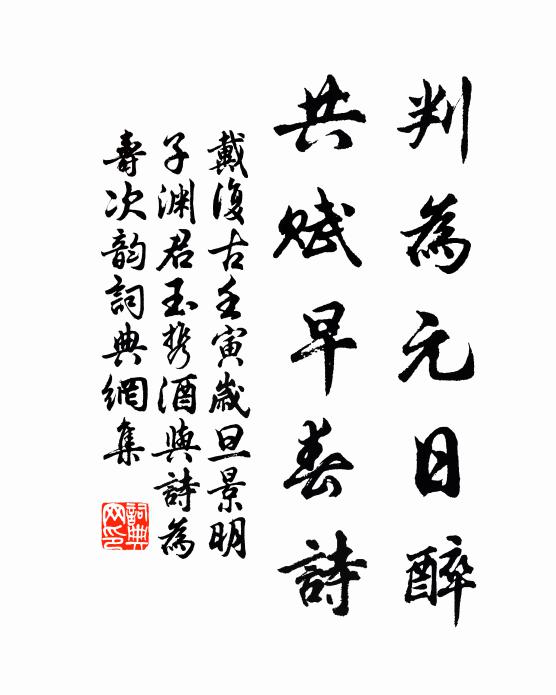 判為元日醉
共賦早春詩
戴復古壬寅歲旦景明
子渊君玉携酒與詩為
壽次韵詞典網集
詞典网印